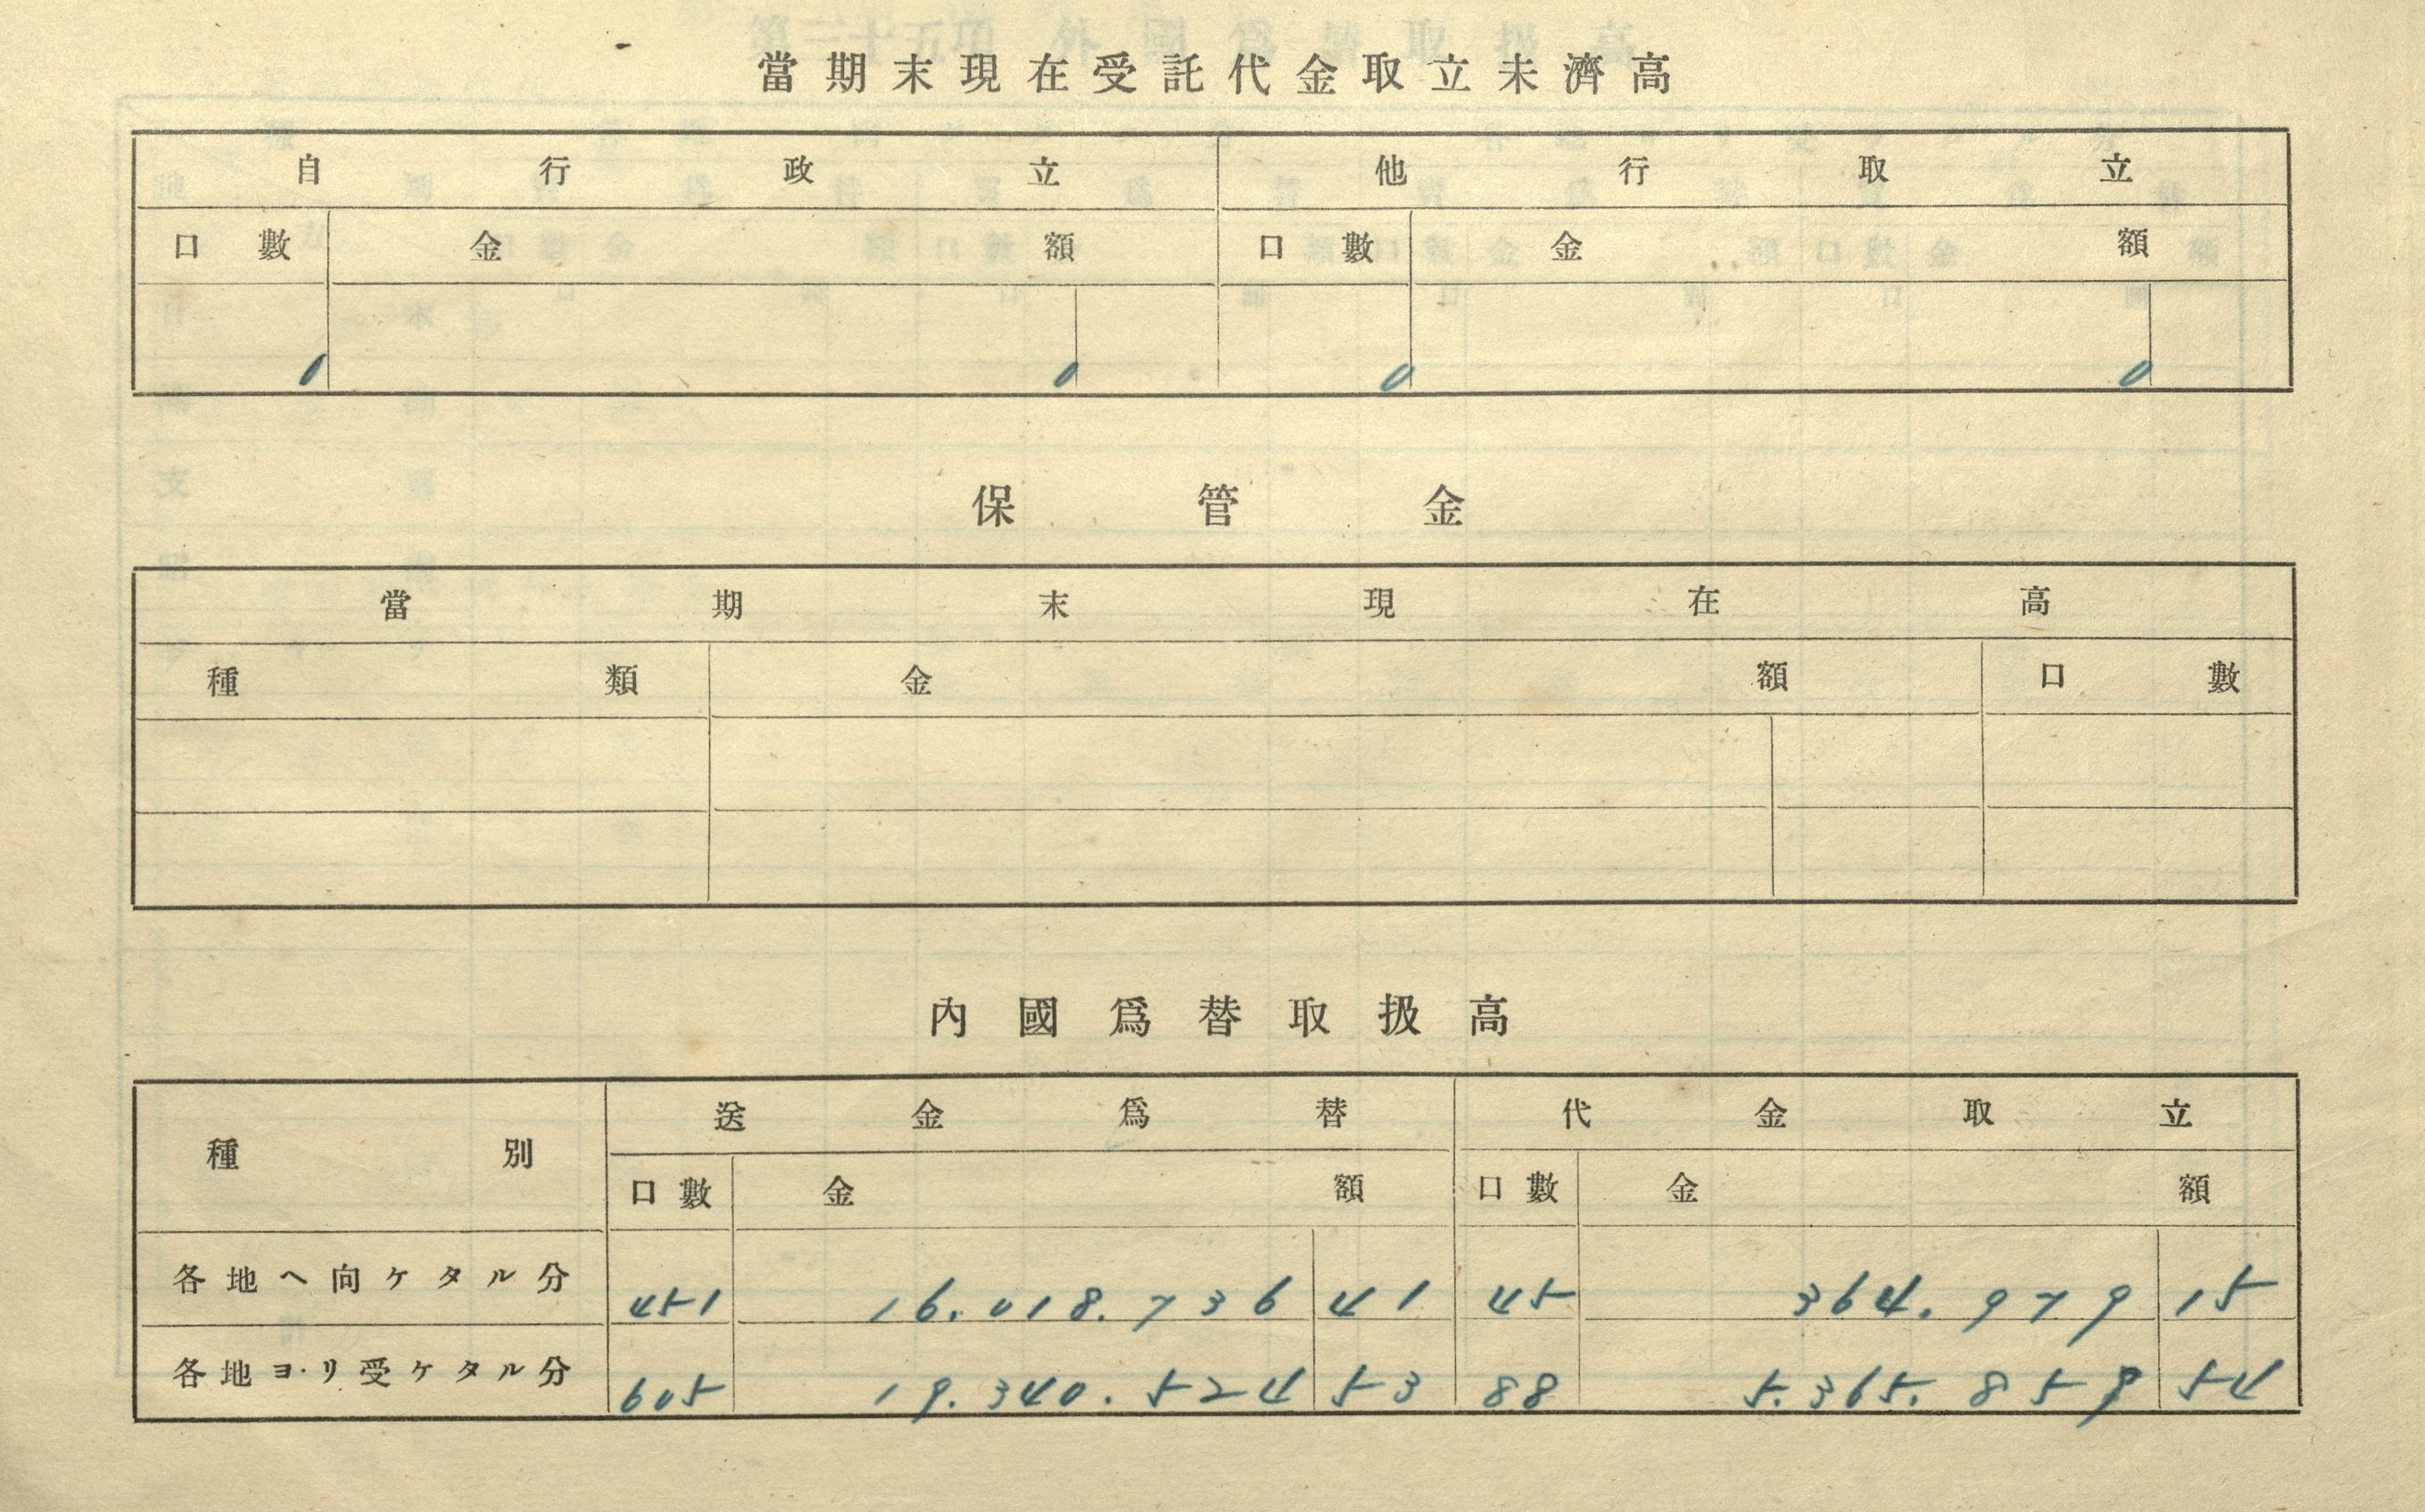 當期末現在受託代金取立未濟高
自行政立 他行取立
口數 金額 口數 金額
0 0 0 0
保管金
當期末現在高
種類 金額 口數
內國爲替取扱高
種別 送金爲替 代金取立
口數 金額 口數 金額
各地ヘ向ケタル分 451 16.018.736 41 45 364.979 15
各地ヨリ受ケタル分 605 19.340.524 53 88 5.365.859 54